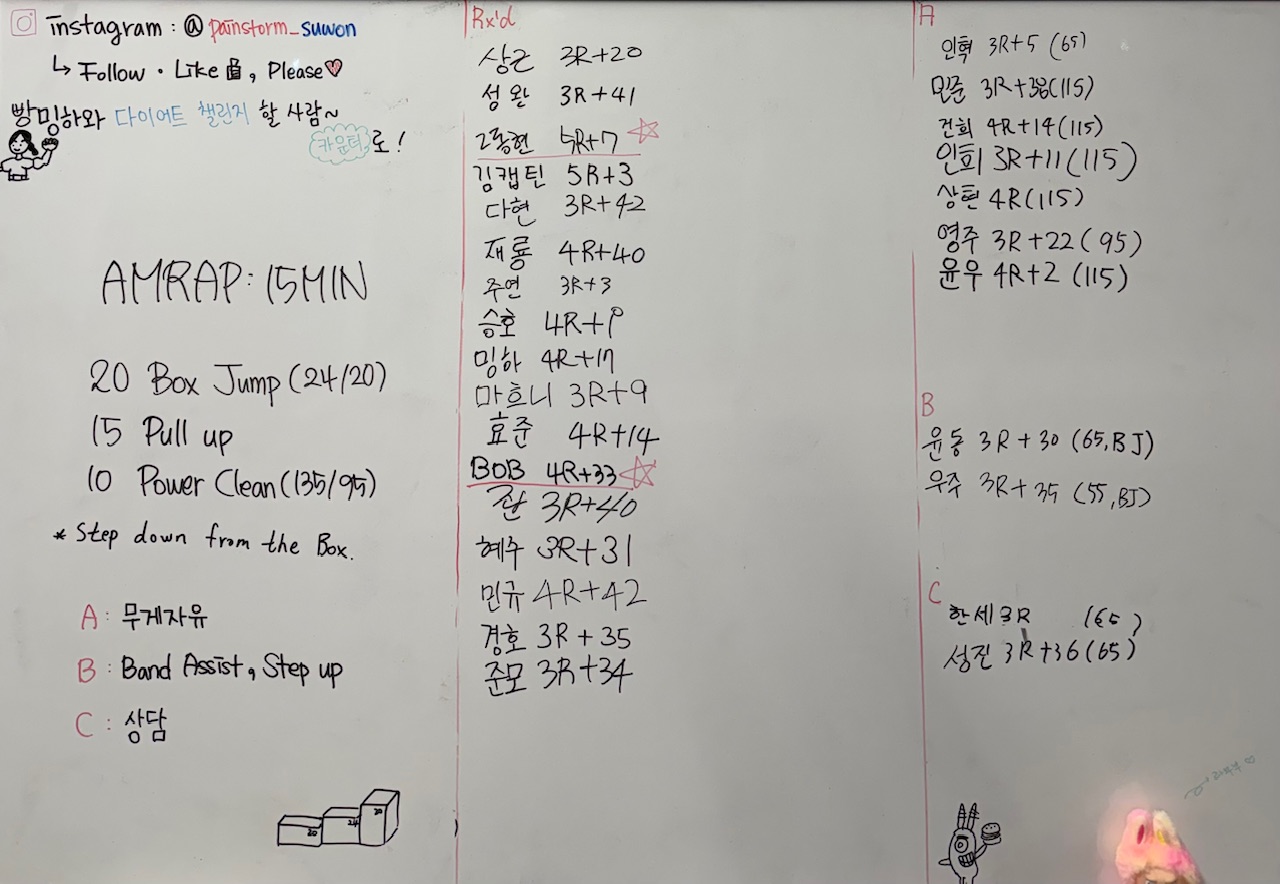 instagram : @ painstorm_suwon
↳ Follow · Like , Please♡
빵밍하와 다이어트 챌린지 할 사람~
카운터로!
AMRAP: 15MIN
20 Box Jump (24/20)
15 Pull up
10 Power Clean (135/95)
* Step down from the Box.
A : 무게자유
B : Band Assist, Step up
C : 상담
20
24
30
Rx'd
상근 3R+20
성완 3R+41
5R+7
김캡틴 5R+3
다현 3R+42
재룡 4R+40
주연 3R+3
승호
밍하 4R+17
마흐니 3R+9
효준 4R+14
BOB 4R+33
3R+40
혜주 3R+31
민규 4R+42
경호 3R+35
준모 3R+34
A
인혁 3R+5 (65)
민준 (115)
건희 4R+14 (115)
인희 3R+11 (115)
상현 4R (115)
영주 3R+22 (95)
윤우 4R+2 (115)
B
윤동 3R+30 (65,BJ)
우주 3R+35 (55,BJ)
C
한세 3R
성진 3R+36 (65)